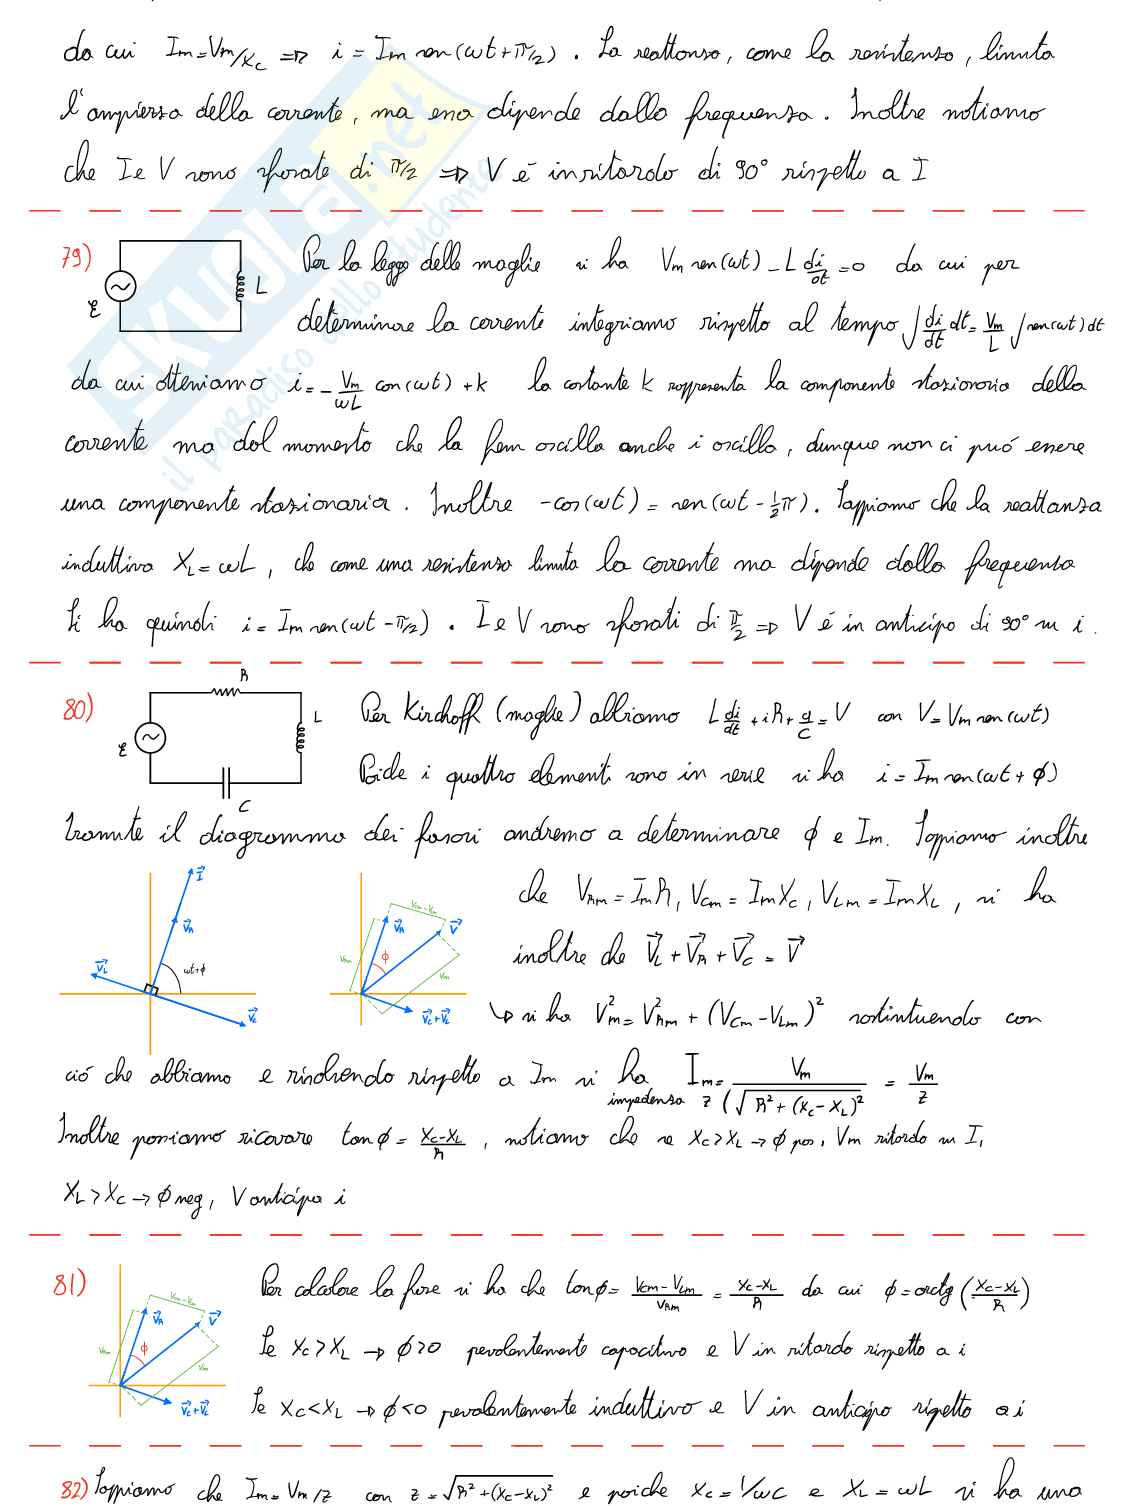 da cui Im=Vm/Xc => i = Im sen(ωt+π/2) . La reattanza, come la resistenza, limita
l'ampiezza della corrente, ma essa dipende dalla frequenza. Inoltre notiamo
che I e V sono sfasate di π/2 => V é in ritardo di 90° rispetto a I
79) ε L Per la legge delle maglie si ha Vm sen(ωt) - L di/dt = 0 da cui per
determinare la corrente integriamo rispetto al tempo ∫ di/dt dt = Vm/L ∫ sen(ωt) dt
da cui otteniamo i = - Vm/ωL cos(ωt) + k la costante k rappresenta la componente stazionaria della
corrente ma dal momento che la fem oscilla anche i oscilla, dunque non ci puó essere
una componente stazionaria. Inoltre -cos(ωt) = sen(ωt - 1/2 π). Sappiamo che la reattanza
induttiva XL = ωL, che come una resistenza limita la corrente ma dipende dalla frequenza
Si ha quindi i = Im sen(ωt - π/2) . I e V sono sfasati di π/2 => V é in anticipo di 90° su i.
80) ε R L C Per Kirchoff (maglie) abbiamo L di/dt + iR + q/C = V con V = Vm sen(ωt)
Poiché i quattro elementi sono in serie si ha i = Im sen(ωt + φ)
tramite il diagramma dei fasori andremo a determinare φ e Im. Sappiamo inoltre
I VR VL VC ωt+φ
VCm-VLm VRm VR φ V Vm VC+VL
che VRm = Im R, VCm = Im XC, VLm = Im XL, si ha
inoltre che VL + VR + VC = V
↳ si ha Vm² = VRm² + (VCm - VLm)² sostintuendo con
ció che abbiamo e risolvendo rispetto a Im si ha Im = Vm / √(R² + (XC - XL)²) = Vm/Z
impedenza Z
Inoltre possiamo ricavare tanφ = XC-XL/R , notiamo che se XC > XL → φ pos, Vm ritardo su I,
XL > XC → φ neg, V anticipa i
81) VCm-VLm VRm VR φ V Vm VC+VL Per calcolare la fase si ha che tanφ = VCm-VLm/VRm = XC-XL/R da cui φ = arctg (XC-XL/R)
Se XC > XL → φ>0 prevalentemente capacitivo e V in ritardo rispetto a i
Se XC < XL → φ<0 prevalentemente induttivo e V in anticipo rispetto a i
82) Sappiamo che Im = Vm/Z con Z = √(R² + (XC-XL)²) e poiche XC = 1/ωC e XL = ωL si ha una
SKUOLA.net
il paradiso dello studente